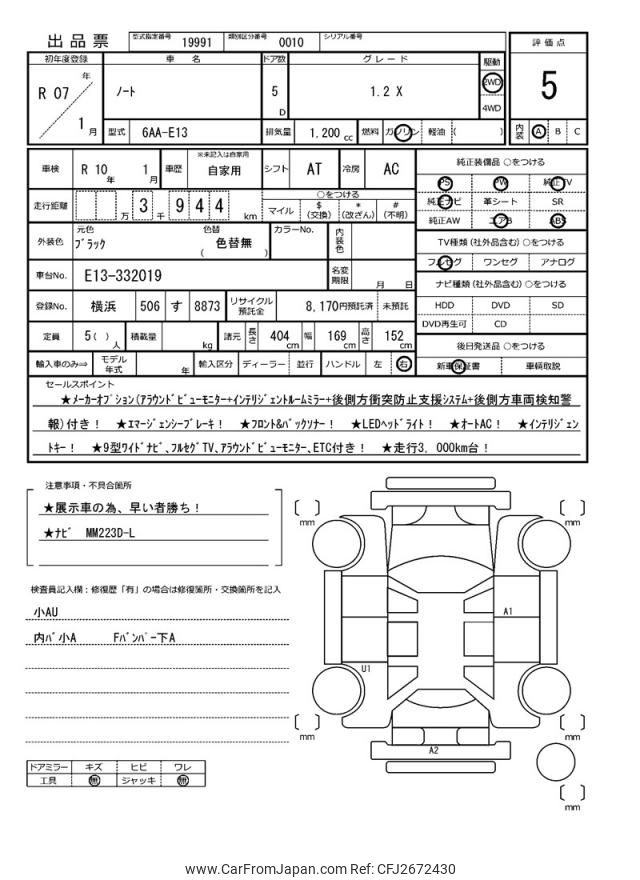 出品票 型式指定番号 19991 類別区分番号 0010 シリアル番号
評価点
5
内装 A B C
初年度登録 車名 ドア数 グレード 駆動
R 07 年 ﾉｰﾄ 5 D 1.2 X 2WD
1 月 4WD
型式 6AA-E13 排気量 1.200 cc 燃料 ガソリン 軽油 ( )
車検 R 10 年 1 月 車歴 ※未記入は自家用 自家用 シフト AT 冷房 AC
純正装備品 ○をつける
PS PW 純正TV
純正ナビ 革シート SR
純正AW エアB ABS
走行距離 万 3 千 9 4 4 km
○をつける
マイル $ (交換) * (改ざん) # (不明)
外装色 元色 ﾌﾞﾗｯｸ 色替 ( 色替無 ) カラーNo. 内装色
TV種類 (社外品含む) ○をつける
フルセグ ワンセグ アナログ
車台No. E13-332019 名変期限 月 日
ナビ種類 (社外品含む) ○をつける
HDD DVD SD
DVD再生可 CD
登録No. 横浜 506 す 8873 リサイクル預託金 8,170円預託済 未預託
定員 5( ) 人 積載量 kg 諸元 長さ 404 cm 幅 169 cm 高さ 152 cm
後日発送品 ○をつける
新車保証書 車輌取説
輸入車のみ⇒ モデル年式 年 輸入区分 ディーラー 並行 ハンドル 左 右
セールスポイント
★ﾒｰｶｰｵﾌﾟｼｮﾝ(ｱﾗｳﾝﾄﾞﾋﾞｭｰﾓﾆﾀｰ+ｲﾝﾃﾘｼﾞｪﾝﾄﾙｰﾑﾐﾗｰ+後側方衝突防止支援ｼｽﾃﾑ+後側方車両検知警
報)付き! ★ｴﾏｰｼﾞｪﾝｼｰﾌﾞﾚｰｷ! ★ﾌﾛﾝﾄ&ﾊﾞｯｸｿﾅｰ! ★LEDﾍｯﾄﾞﾗｲﾄ! ★ｵｰﾄAC! ★ｲﾝﾃﾘｼﾞｪﾝ
ﾄｷｰ! ★9型ﾜｲﾄﾞﾅﾋﾞ､ﾌﾙｾｸﾞTV､ｱﾗｳﾝﾄﾞﾋﾞｭｰﾓﾆﾀｰ､ETC付き! ★走行3, 000km台!
注意事項・不具合箇所
★展示車の為、早い者勝ち!
★ﾅﾋﾞ MM223D-L
検査員記入欄：修復歴「有」の場合は修復箇所・交換箇所を記入
小AU
内ﾊﾞ小A Fﾊﾞﾝﾊﾟｰ下A
mm
mm
A1
U1
mm
mm
A2
mm
ドアミラー キズ ヒビ ワレ
工具 無 ジャッキ 無
www.CarFromJapan.com Ref: CFJ2672430